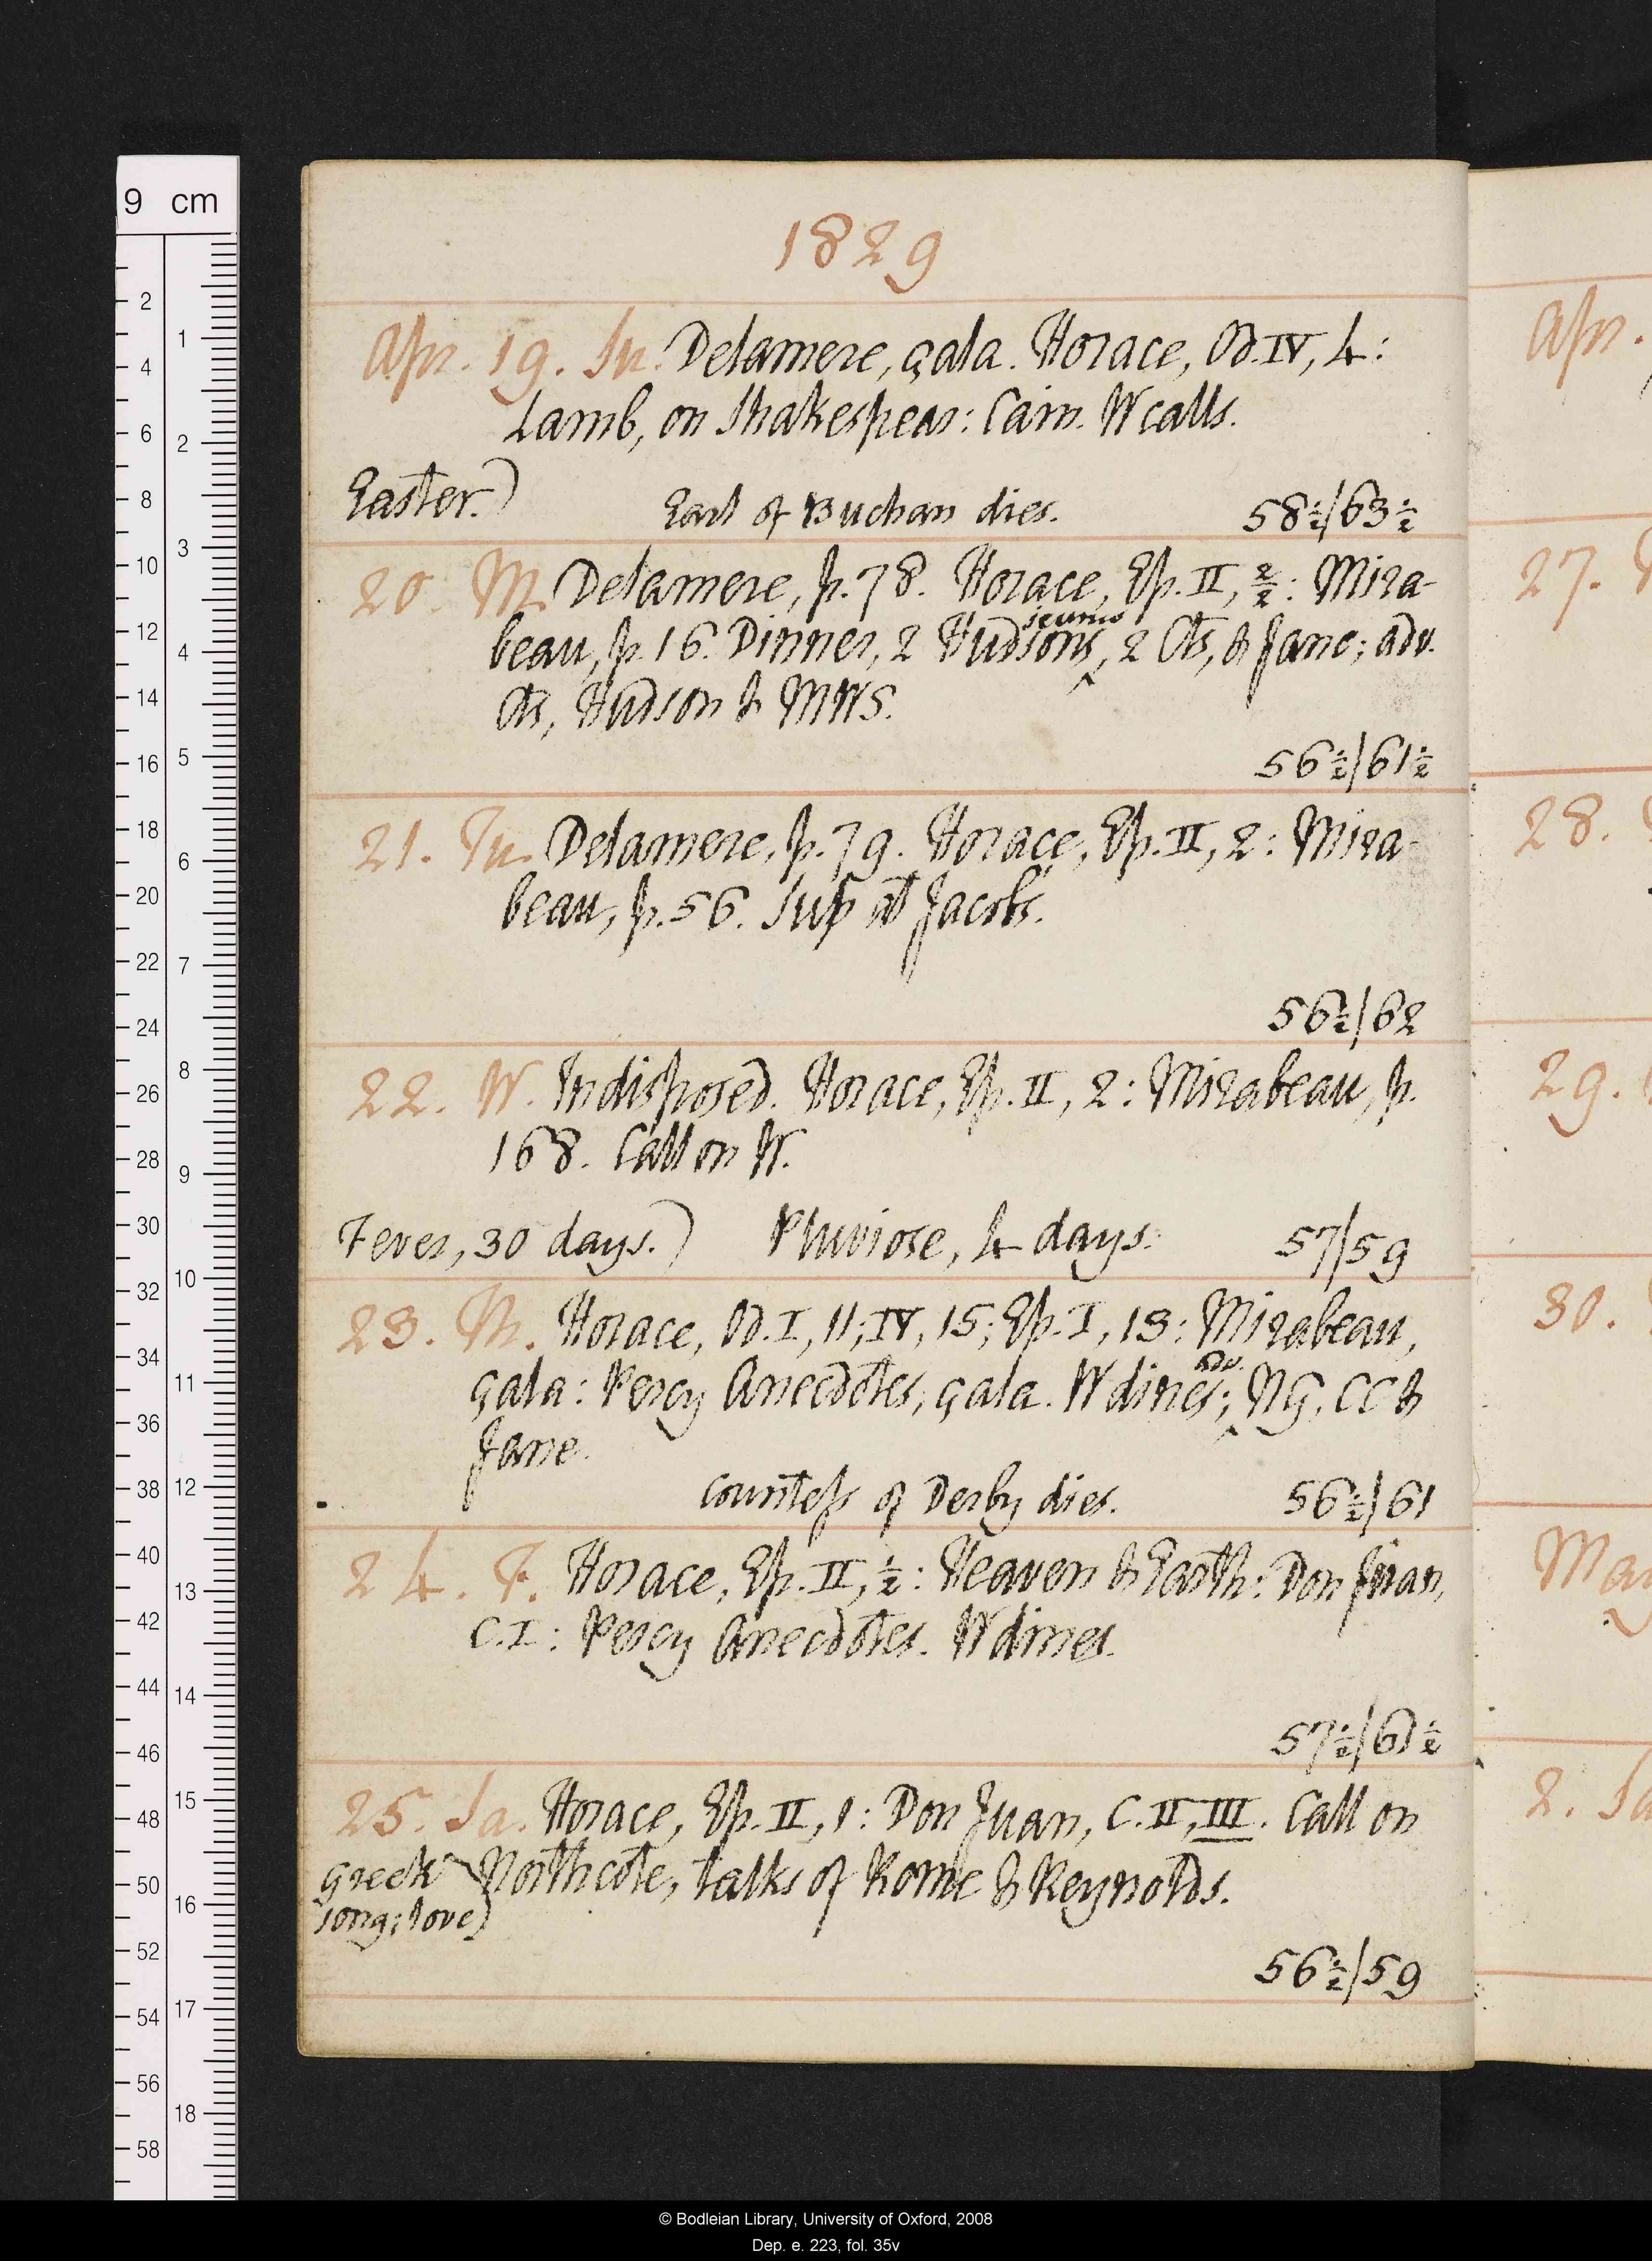 1829
Apr. 19. Su. Delamere, çala. Horace, Od. IV, 4:
Lamb, on Shakespear: Cain. W calls.
Easter.) Earl of Buchan dies. 58½/63½
20. M. Delamere, p. 78. Horace, Ep. II, 2/2: Mira-
jeunes
beau, p. 16. Dinner, 2 Hudsons, 2 Cts, & Jane; adv.
Cts, Hudson & MWS.
56½/61½
21. Tu. Delamere, p. 79. Horace, Ep. II, 2: Mira-
beau, p. 56. Sup at Jacobs'.
56½/62
22. W. Indisposed. Horace, Ep. II, 2: Mirabeau, p.
168. Call on W.
Fever, 30 days.) Pluviose, 4 days. 57/59
23. Th. Horace, Od. I, 11; IV, 15; Ep. I, 13: Mirabeau,
adv.
çala: Percy Anecdotes, çala. W dines; NG, CC &
Jane.
Countess of Derby dies. 56½/61
24. F. Horace, Ep. II, ½: Heaven & Earth: Don Juan,
C. I: Percy Anecdotes. W dines.
57½/61½
25. Sa. Horace, Ep. II, 1: Don Juan, C. II, III. Call on
Greek Northcote, talks of Rome & Reynolds.
song; love)
56½/59
Apr.
27.
28.
29.
30.
May
2. Sa
9 cm
2 4 6 8 10 12 14 16 18 20 22 24 26 28 30 32 34 36 38 40 42 44 46 48 50 52 54 56 58
1 2 3 4 5 6 7 8 9 10 11 12 13 14 15 16 17 18
© Bodleian Library, University of Oxford, 2008
Dep. e. 223, fol. 35v